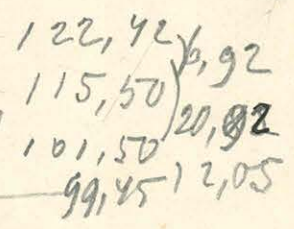 122,42 ) 6,92
115,50 ) 20,92
101,50
99,45 ) 2,05